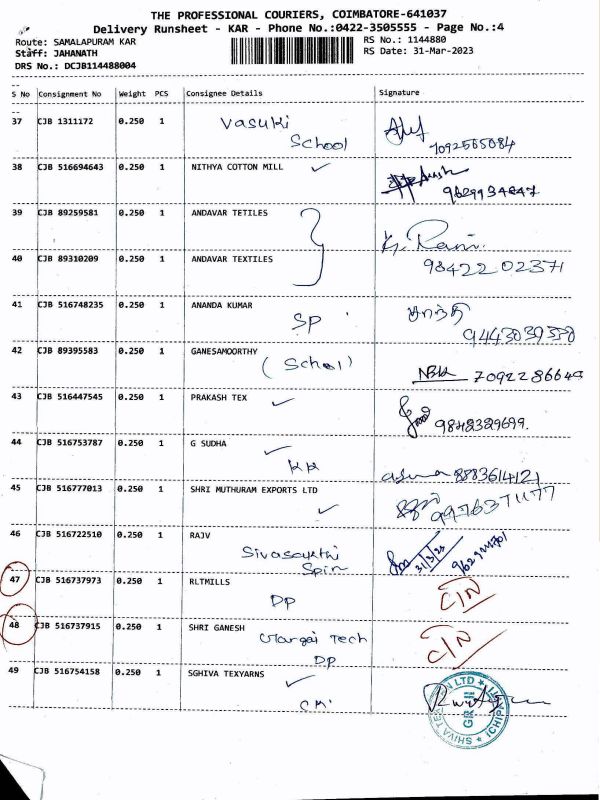 THE PROFESSIONAL COURIERS, COIMBATORE-641037
Delivery Runsheet - KAR - Phone No.:0422-3505555 - Page No.:4
Route: SAMALAPURAM KAR
RS No.: 1144880
Staff: JAHANATH
RS Date: 31-Mar-2023
DRS No.: DCJB114488004
S No Consignment No Weight PCS Consignee Details Signature
37 CJB 1311172 0.250 1 Vasuki
School
7092565084
38 CJB 516694643 0.250 1 NITHYA COTTON MILL
39 CJB 89259581 0.250 1 ANDAVAR TETILES
K. Rani.
40 CJB 89310209 0.250 1 ANDAVAR TEXTILES
98422 02371
41 CJB 516748235 0.250 1 ANANDA KUMAR
SP
சாந்தி
42 CJB 89395583 0.250 1 GANESAMOORTHY
(School)
43 CJB 516447545 0.250 1 PRAKASH TEX
44 CJB 516753787 0.250 1 G SUDHA
KK
8883614121
45 CJB 516777013 0.250 1 SHRI MUTHURAM EXPORTS LTD
46 CJB 516722510 0.250 1 RAJV
Sivasakthi
Spin
31/3/23
47 CJB 516737973 0.250 1 RLTMILLS
DP
C/N
48 CJB 516737915 0.250 1 SHRI GANESH
Tech
DP
C/N
49 CJB 516754158 0.250 1 SGHIVA TEXYARNS